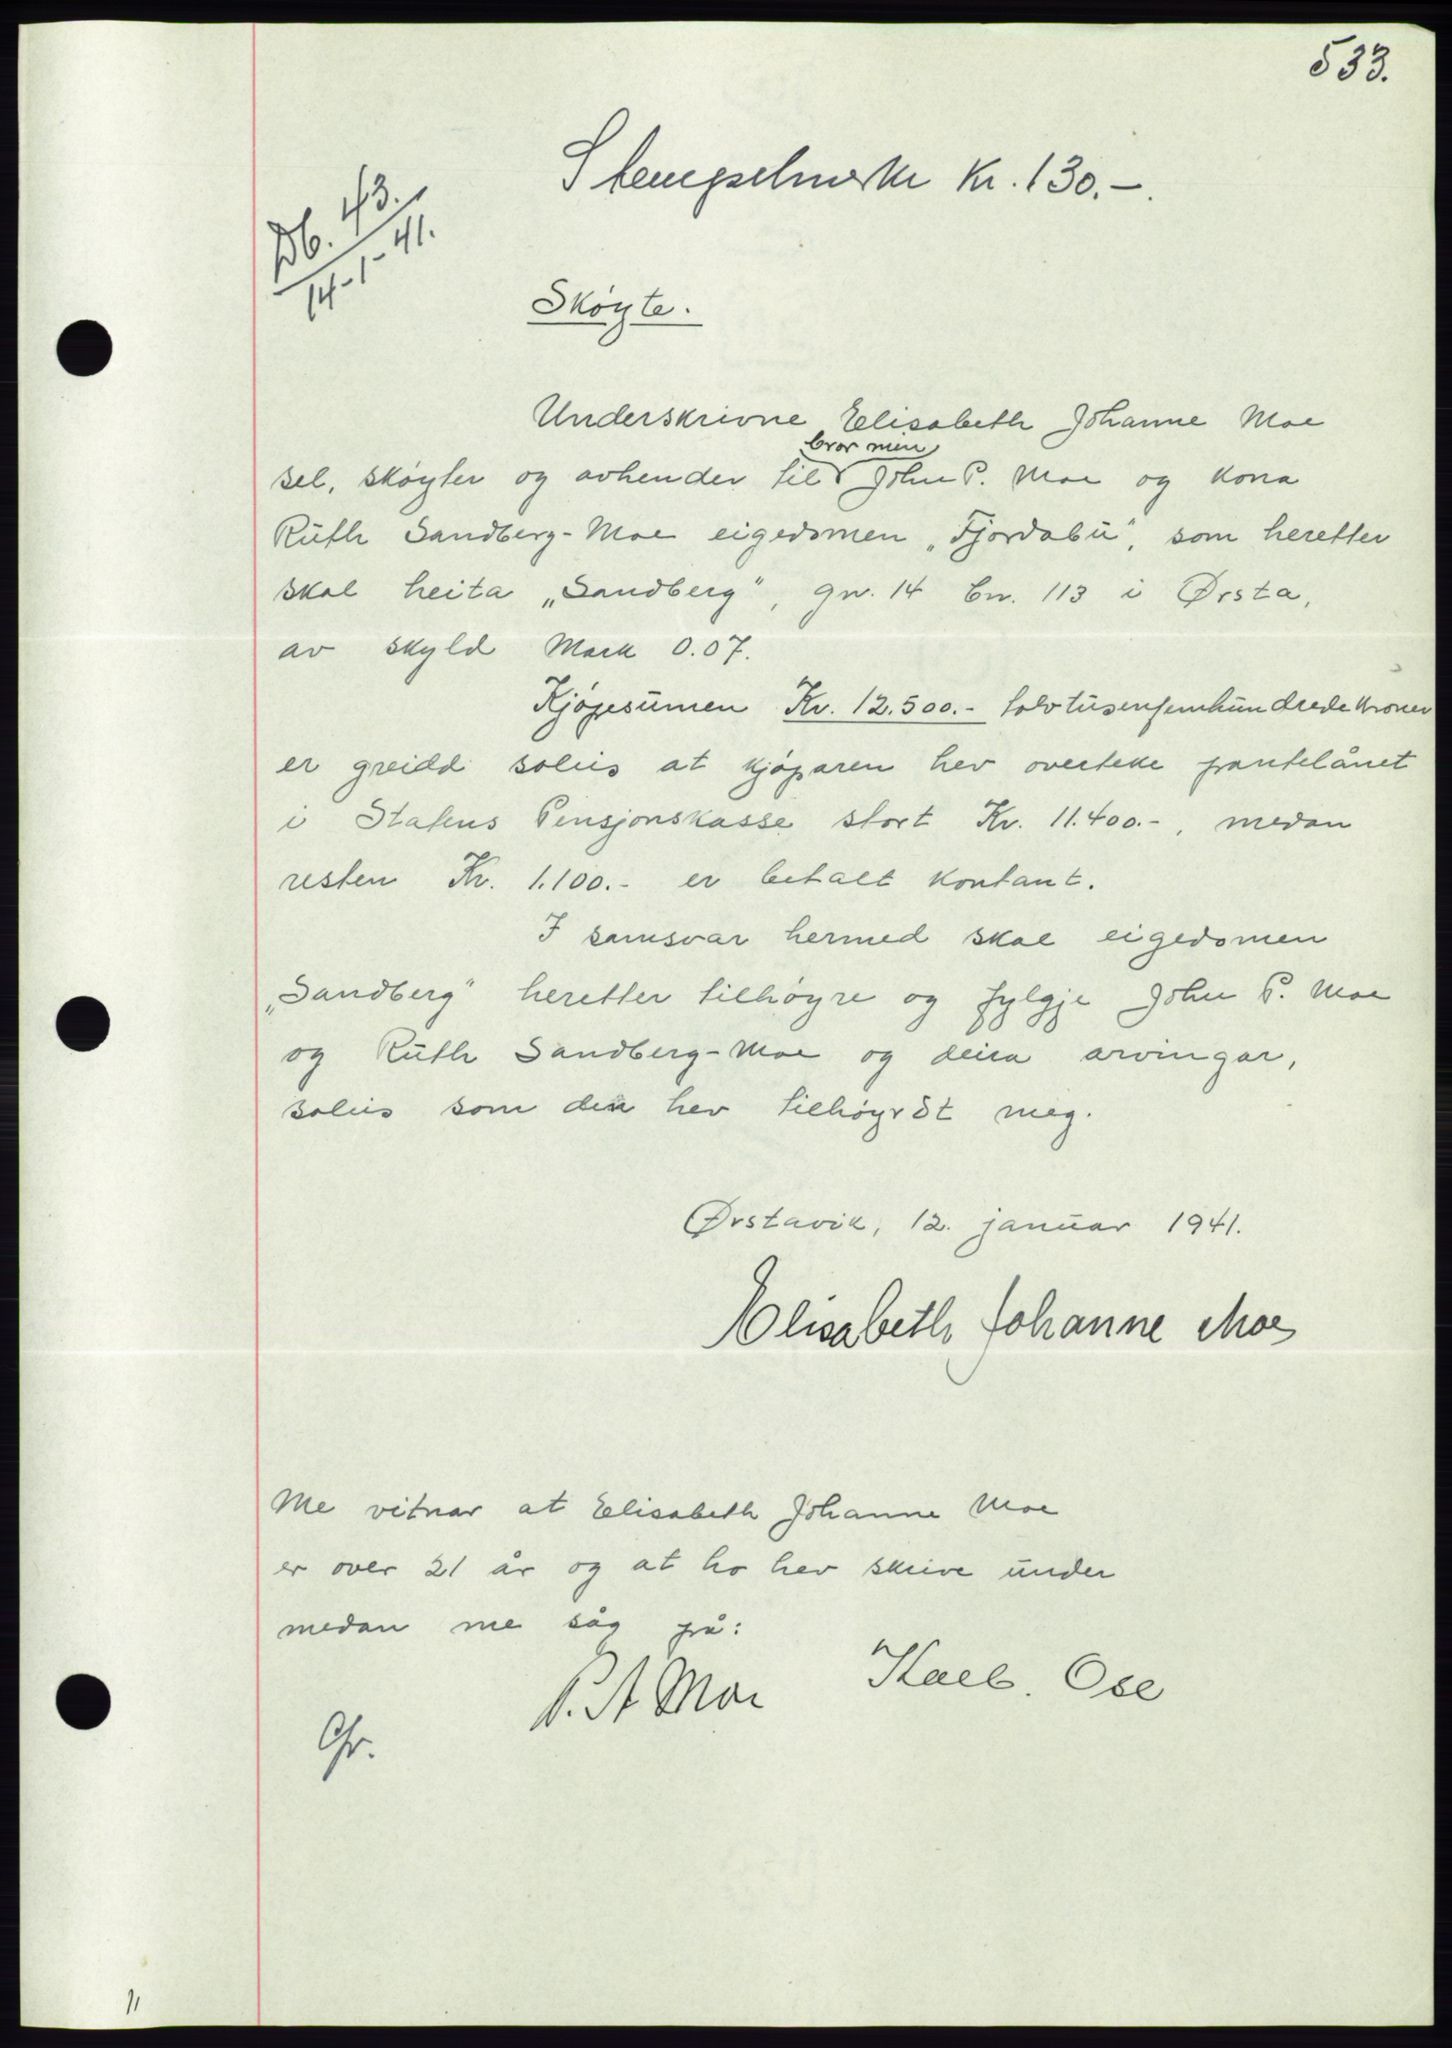 533.
Stempelmerke Kr. 130.-.
Db. 43.
14-1-41.
Skøyte.
Underskrivne Elisabeth Johanne Moe
bror min
sel, skøyter og avhender til John P. Moe og kona
Ruth Sandberg-Moe eigedomen „Fjordabu", som heretter
skal heita „Sandberg", gn. 14 bn. 113 i Ørsta,
av skyld Mark 0.07.
Kjøpesumen Kr. 12.500.- tolvtusenfemhundrede kroner
er greidd soleis at kjøparen hev overteke pantelånet
i Statens Pensjonskasse stort Kr. 11.400.-, medan
resten Kr. 1.100.- er betalt kontant.
I samsvar hermed skal eigedomen
„Sandberg" heretter tilhøyre og fylgje John P. Moe
og Ruth Sandberg-Moe og deira arvingar,
soleis som den hev tilhøyrdt meg.
Ørstavik, 12. januar 1941.
Elisabeth Johanne Moe
Me vitnar at Elisabeth Johanne Moe
er over 21 år og at ho hev skrive under
medan me såg på:
P. A Moe Kaleb. Ose
Gr.